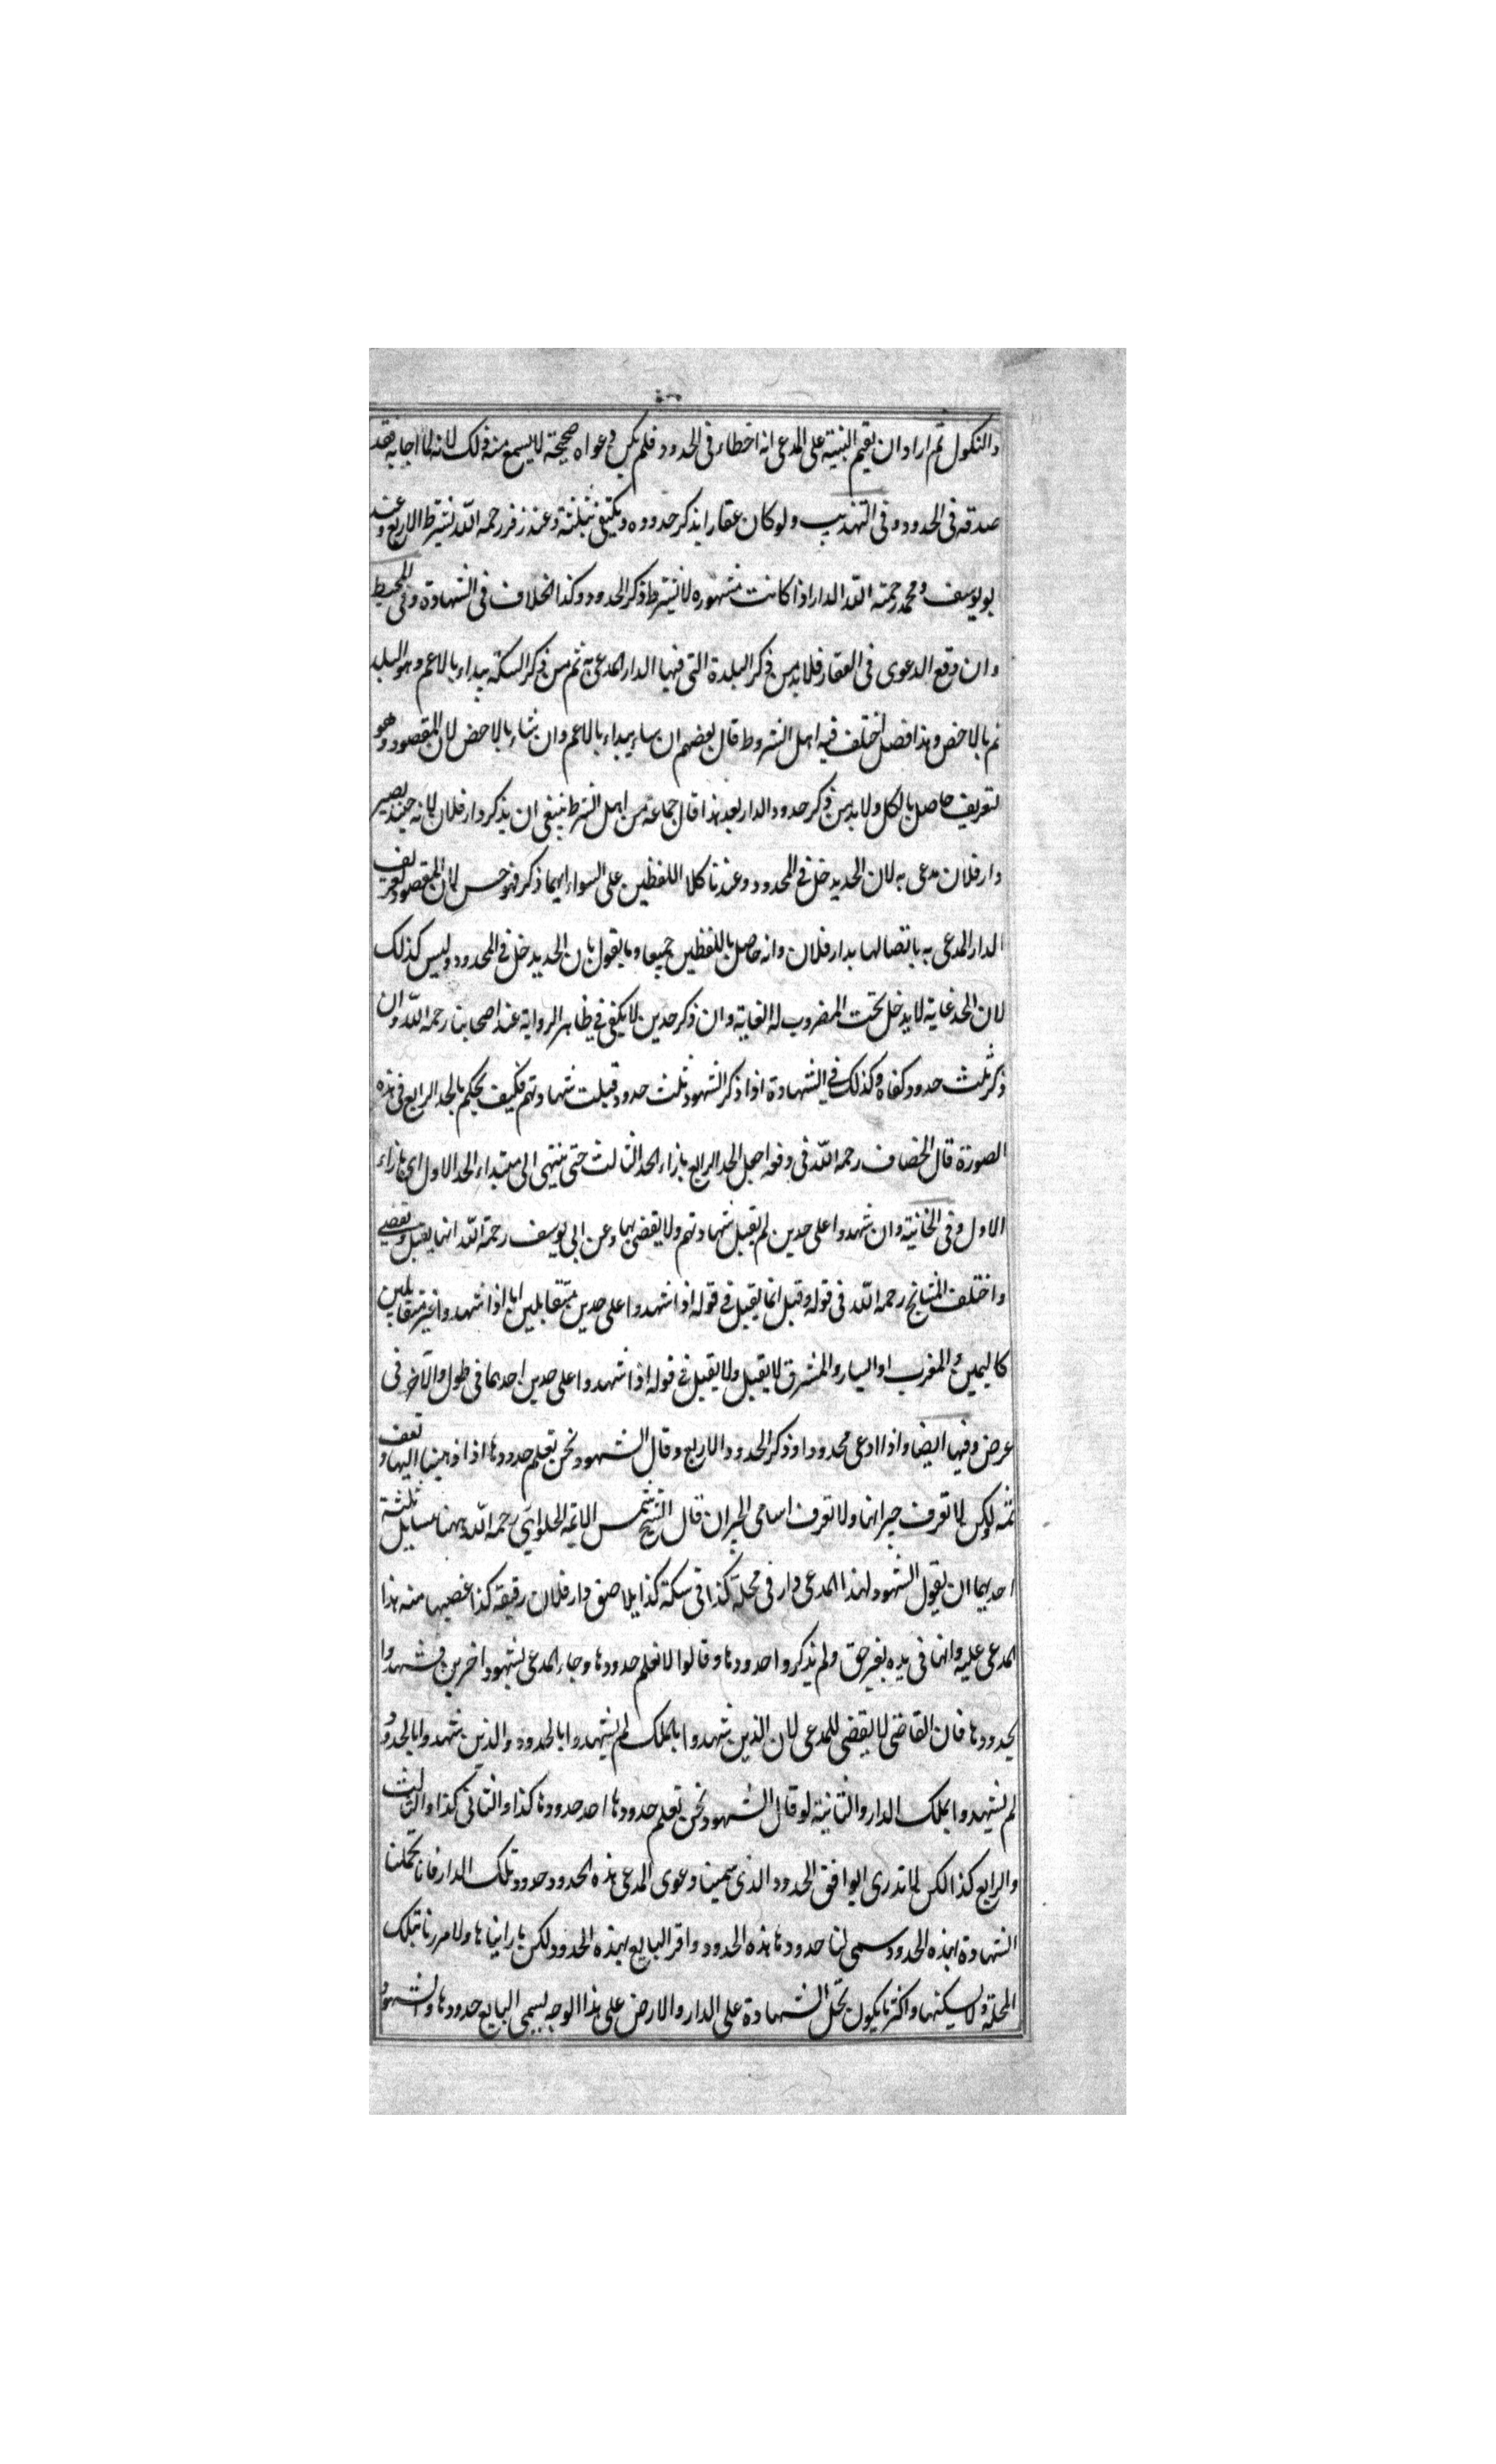 والنكول ثم اراد ان يقيم البينة على المدعى انه اخطاء فى الحدود فلم يكن دعواه صحيحة لا يسمع منه ذلك لانه لما اجابه فقد
صدقه فى الحدود وفى التهذيب ولو كان عقارا يذكر حدوده ويكتفى بثلثة وعند زفر رحمه الله يشترط الاربع وعند
بو يوسف ومحمد رحمة الله الدار اذا كانت مشهوره لا يشترط ذكر الحدود وكذا الخلاف فى الشهادة وفى المحيط
وان وقع الدعوى فى العقار فلا بد من ذكر البلدة التى فيها الدار المدعى به ثم من ذكر السكة يبداء بالاعم وهو البلد
ثم بالاخص وهذا فصل اختلف فيه اهل الشروط قال بعضهم ان ساء يبداء بالاعم وان شاء بالاخص لان المقصود وهو
لتعريف حاصل بالكل ولا بد من ذكر حدود الدار بعد هذا قال جماعة من اهل الشرط ينبغى ان يذكر دار فلان لانه حينئذ يصير
دار فلان مدعى به لان الحد يدخل فى المحدود وعندنا كلا اللفظين على السواء ايهما ذكر فهو حسن لان المقصود تعريف
الدار المدعى به باتصالها بدار فلان وانه حاصل باللفظين جميعا وما يقول بان الحد يدخل فى المحدود وليس كذلك
لان الحد غاية لا يدخل تحت المضروب له الغاية وان ذكر حدين لا يكفى فى ظاهر الرواية عند اصحابنا رحمه الله وان
ذكر ثلث حدود كفاه وكذلك فى الشهادة اذا ذكر الشهود ثلث حدود قبلت شهادتهم فكيف يحكم بالحد الرابع فى هذه
الصورة قال الخصاف رحمه الله فى وقفه اجعل الحد الرابع بازاء الحد الثالث حتى ينتهى الى مبتداء الحد الاول اى بازاء
الاول وفى الخانية وان شهدوا على حدين لم يقبل شهادتهم ولا يقضى بها وعن ابى يوسف رحمة الله انها يقبل ويقضى
واختلف المشايخ رحمه الله فى قوله وقيل انما يقبل فى قوله اذا شهدوا على حدين متقابلين اما اذا شهدوا غير متقابلين
كاليمين المغرب او اليسار والمشرق لا يقبل ولا يقبل فى قوله اذا شهدوا على حدين احديهما فى طول والآخر فى
عرض وفيها ايضا واذا ادعى محدودا وذكر الحدود الاربع وقال الشهود نحن نعلم حدودها اذا ذهبنا اليها ونقف
ثمه ولكن لا نعرف جيرانها ولا نعرف اسامى الجيران قال الشيخ شمس الائمة الحلوايي رحمه الله ههنا مسايل ثلثة
احديهما ان يقول الشهود لهذا المدعى دار فى محلة كذا فى سكة كذا يلاصق دار فلان رقيقه كذا غصبها منه هذا
المدعى عليه وانها فى يده بغير حق ولم يذكروا حدودها وقالوا لا نعلم حدودها وجاء المدعى بشهود اخرين فشهدوا
بحدودها فان القاضى لا يقضى للمدعى لان الذين شهدوا بالملك لم يشهدوا بالحدود والذين شهدوا بالحدود
لم يشهدوا بملك الدار والثانية لو قال الشهود نحن نعلم حدودها احد حدودها كذا والثانى كذا والثالث
والرابع كذا لكن لا ندرى ايوافق الحدود الذى سمينا دعوى المدعى هذه الحدود حدود تلك الدار فانا تحملنا
الشهادة بهذه الحدود سمى لنا حدودها هذه الحدود واقر البايع بهذه الحدود لكن ما راينا ها ولا مررنا بتلك
المحلة ولا يسكنها واكثر ما يكون تحمل الشهادة على الدار والارض على هذا الوجه يسمى البايع حدودها والشهود